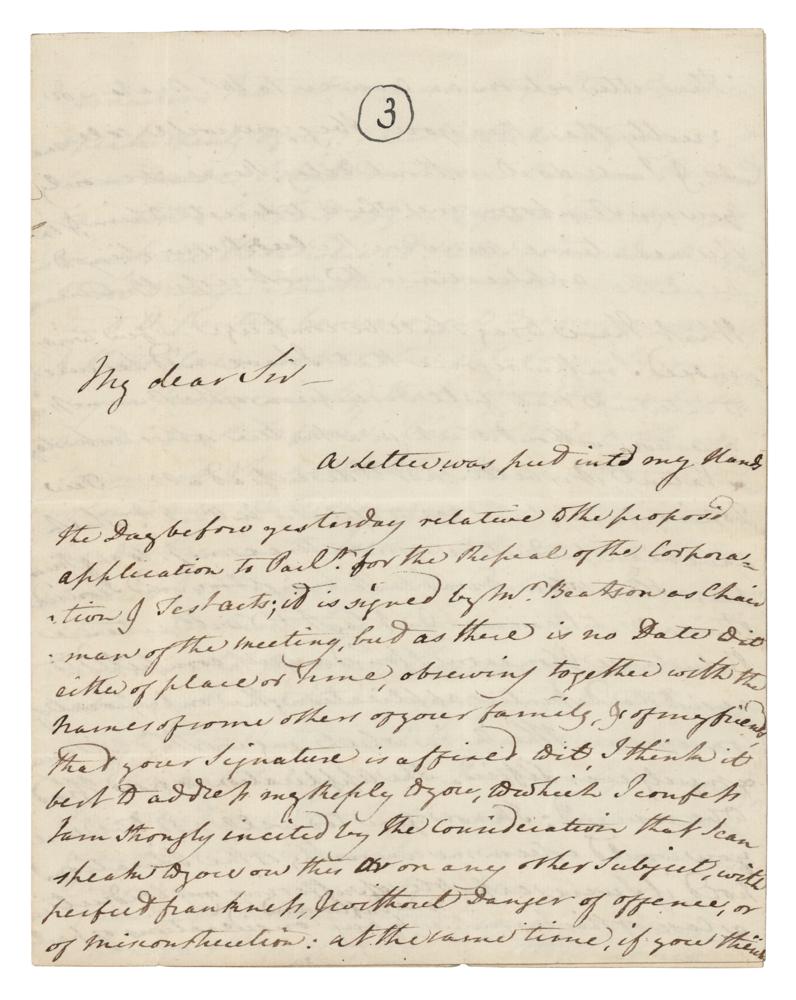 3
My dear Sir—
A Letter was put into my Hands
the Day before yesterday relative to the propos'd
application to Parlt. for the Repeal of the Corpora=
=tion & Test acts; it is signed by Mr. Beatson as Chair
=man of the meeting, but as there is no Date to it
either of place or Time, observing together with the
names of some others of your family, & of my friends
that your Signature is affixed to it, I think it
best to address my Reply to you, to which I confess
I am strongly incited by the Consideration that I can
speak to you on this or on any other Subject, with
perfect frankness, & without Danger of offence, or
of misconstruction: at the same time, if you think